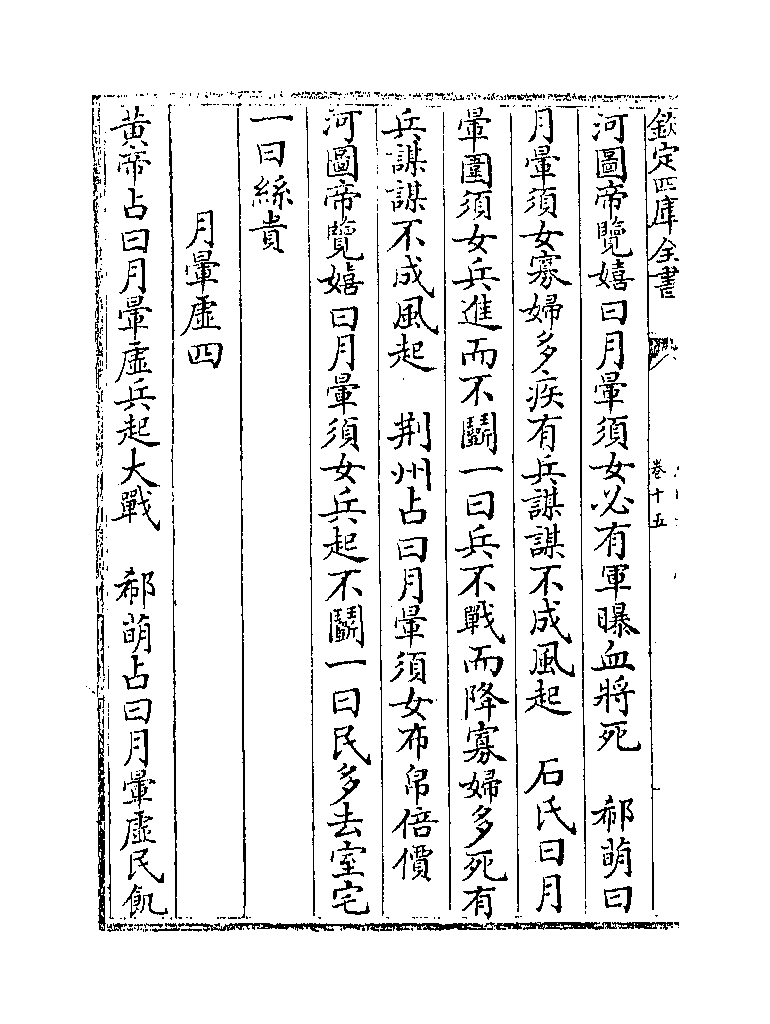 欽定四庫全書
卷十五
河圖帝覽嬉曰月暈須女必有軍曝血將死　郗萌曰
月暈須女寡婦多疾有兵謀謀不成風起　石氏曰月
暈圍須女兵進而不鬬一曰兵不戰而降寡婦多死有
兵謀謀不成風起　荆州占曰月暈須女布帛倍價
河圖帝覽嬉曰月暈須女兵起不鬬一曰民多去室宅
一曰絲貴
月暈虛四
黄帝占曰月暈虛兵起大戰　郗萌占曰月暈虛民飢